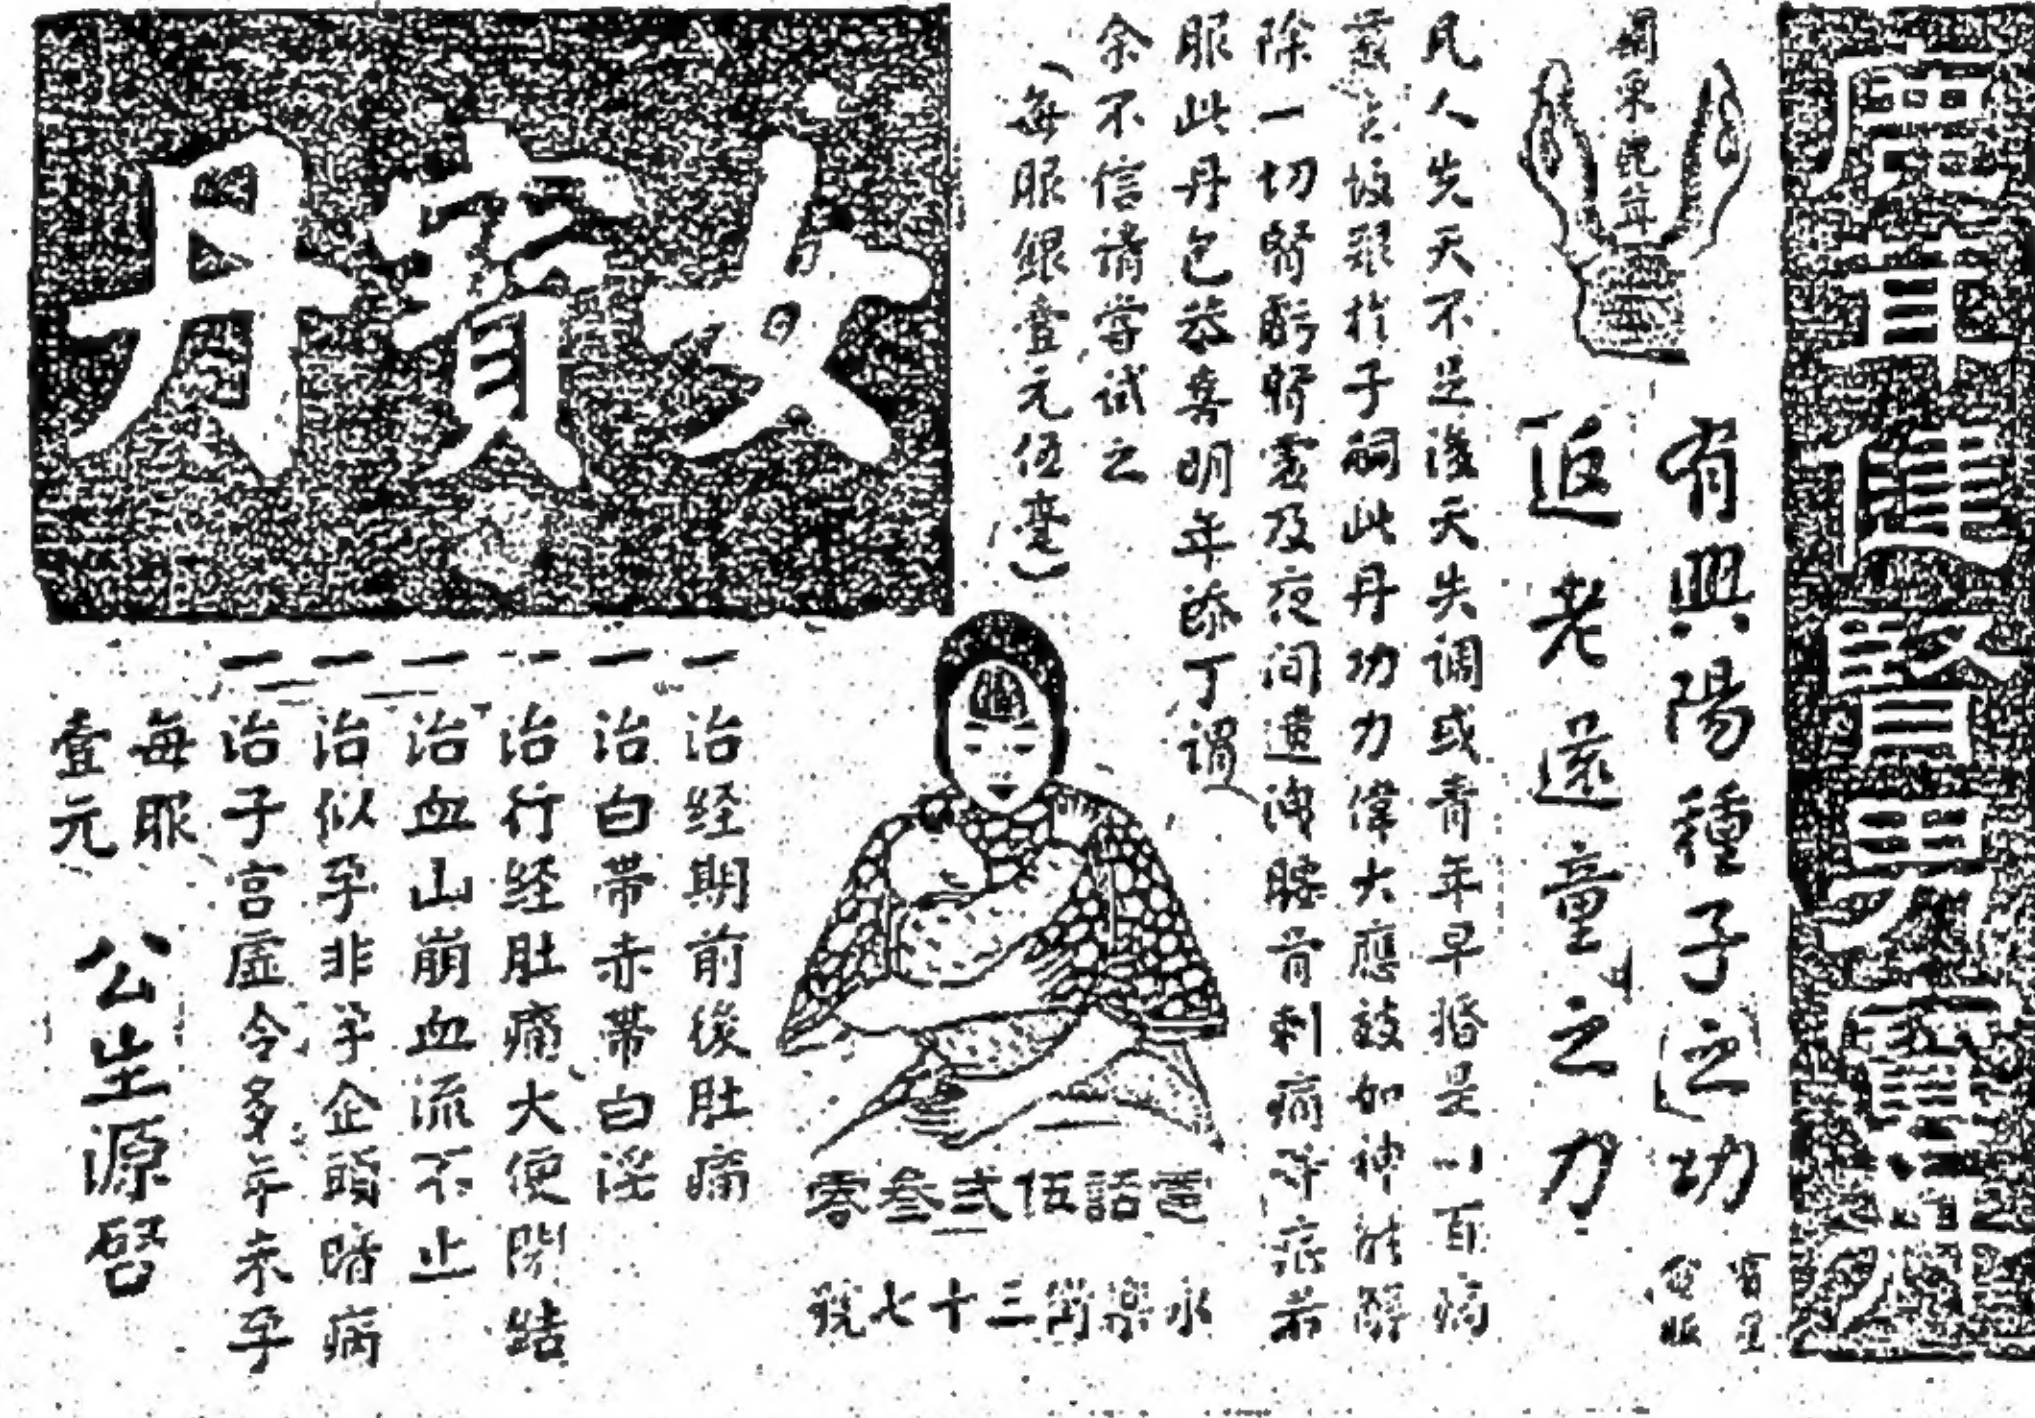 鹿茸健腎男寶
關東鹿茸
有興陽種子之功
返老還童之力
凡人先天不足後天失調或青年早婚是以百病
叢生故艱於子嗣此丹功力偉大應效如神能解
除一切腎虧腎寒及夜間遺洩腰骨刺痛等症若
服此丹包恭喜明年添丁謂
余不信請嘗試之
(每服銀壹元伍毫)
女寶丹
一治經期前後肚痛
一治白帶赤帶白淫
一治行經肚痛大便閉結
一治血山崩血流不止
一治似孕非孕企頭暗病
一治子宮虛冷多年未孕
每服
壹元
公生源啓
電話伍弍叁零
永樂街三十七號